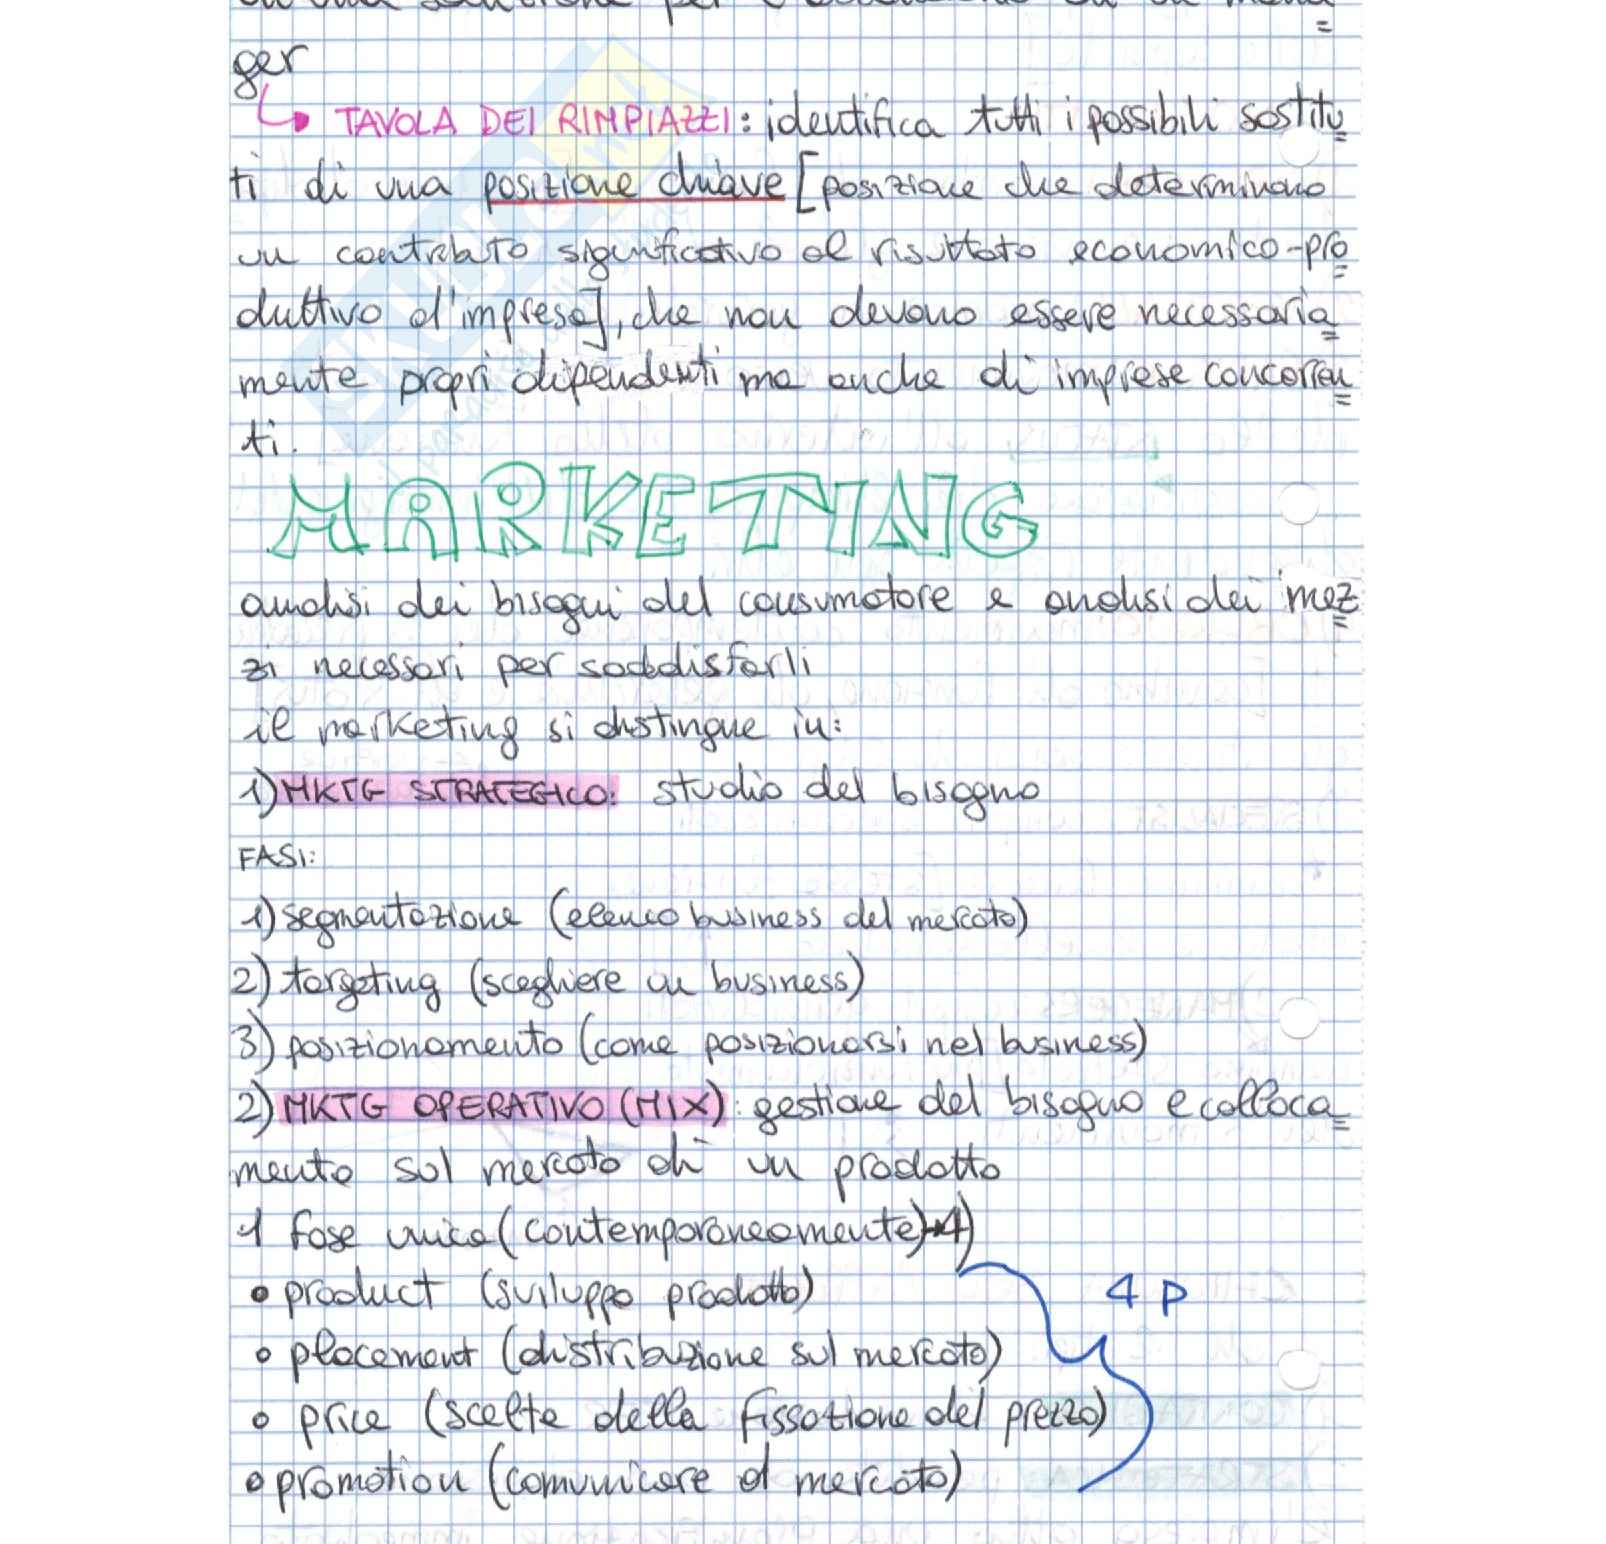 ger
TAVOLA DEI RIMPIAZZI: identifica tutti i possibili sostitu
ti di una posizione chiave [posizione che determinano
un contributo significativo al risultato economico-pro
duttivo d'impresa], che non devono essere necessaria
mente propri dipendenti ma anche di imprese concorren
ti.
MARKETING
analisi dei bisogni del consumatore e analisi dei mez
zi necessari per soddisfarli
il marketing si distingue in:
1) MKTG STRATEGICO: studio del bisogno
FASI:
1) segmentazione (elenco business del mercato)
2) targeting (scegliere un business)
3) posizionamento (come posizionarsi nel business)
2) MKTG OPERATIVO (MIX): gestione del bisogno e colloca
mento sul mercato di un prodotto
1 fase unica (contemporaneamente)→4)
• product (sviluppo prodotto)
4 P
• placement (distribuzione sul mercato)
• price (scelte della fissazione del prezzo)
• promotion (comunicare al mercato)